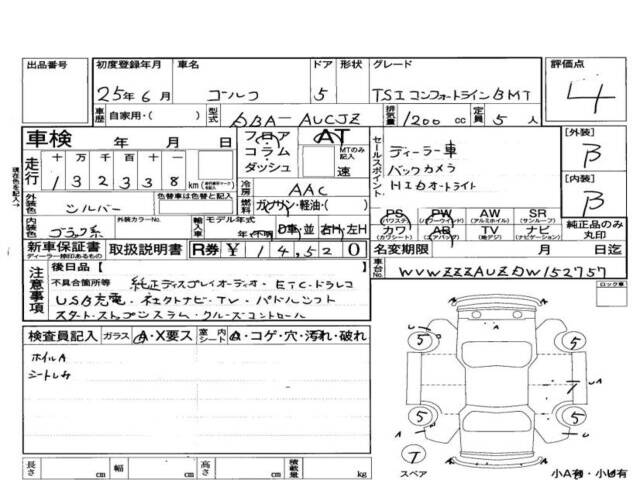 出品番号 初度登録年月 車名 ドア 形状 グレード 評価点
25年6月 ゴルフ 5 TSIコンフォートラインBMT 4
車歴 自家用・( ) 型式 DBA-AUCJZ 排気量 1200cc 定員 5人
車検 年 月 日 フロア コラム ダッシュ AT MTのみ記入 速
走行 十 万 千 百 十 一 132338 km
セールスポイント ディーラー車
バックカメラ
HIDオートライト
[外装] B
[内装] B
冷房 AAC
外装色 シルバー 色替車は色替と記入 燃料 ガソリン・軽油・( )
内装色 ブラック系 外装カラーNo. 輸入車 モデル年式 年(不明) D車・並 右H・左H
PS (パワステ) PW (パワーウインド) AW (アルミホイル) SR (サンルーフ)
カワ (カワシート) AB (エアバッグ) TV (地デジ) ナビ (ナビゲーション)
純正品のみ丸印
新車保証書 ディーラー捺印あるもの 取扱説明書 R券 ¥14,520
名変期限 月 日迄
車台No. WVWZZZAUZDW152757
現在色を記入→
注意事項 後日品[ ]
不具合箇所等 純正ディスプレイオーディオ・ETC・ドラレコ
USB充電・ネクストナビ・TV・パドルシフト
スタートストップシステム・クルーズコントロール
ロック車
検査員記入 ガラス A・X要ス 室内シート A・コゲ・穴・汚れ・破れ
ホイルA
シートしみ
5 5
5 5
7 スペア
小A有・小U有
長さ cm 幅 cm 高さ cm 積載量 kg